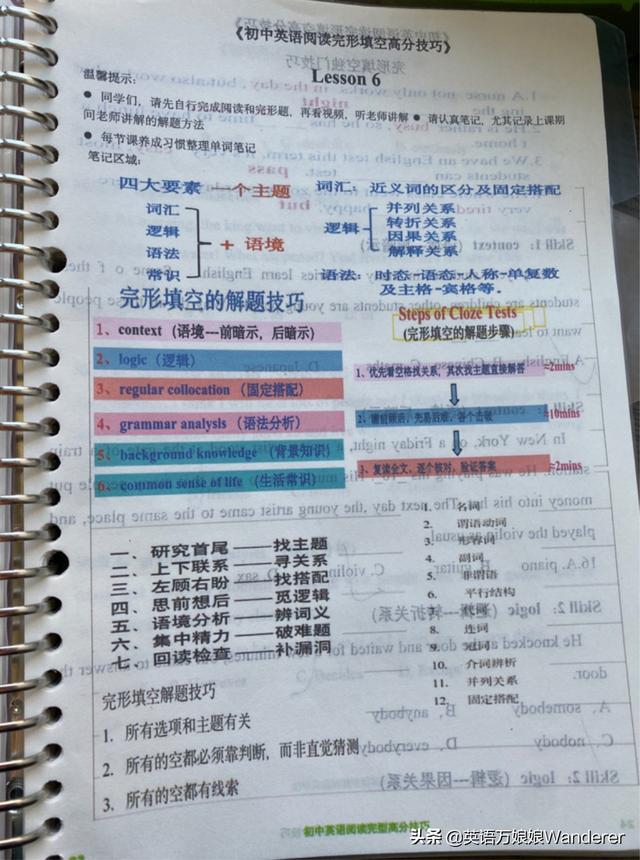 《初中英语阅读完形填空高分技巧》
Lesson 6
温馨提示:
● 同学们，请先自行完成阅读和完形题，再看视频，听老师讲解 ● 请认真笔记，尤其记录上课期
间老师讲解的解题方法
● 每节课养成习惯整理单词笔记
笔记区域:
四大要素 一个主题
词汇
逻辑
语法
常识
+ 语境
词汇: 近义词的区分及固定搭配
逻辑
并列关系
转折关系
因果关系
解释关系
语法: 时态-语态-人称-单复数
及主格-宾格等。
完形填空的解题技巧
1、context（语境---前暗示，后暗示）
2、logic（逻辑）
3、regular collocation（固定搭配）
4、grammar analysis（语法分析）
5、background knowledge（背景知识）
6、common sense of life（生活常识）
Steps of Cloze Tests
(完形填空的解题步骤)
1、优先看空格找关系，其次找主题直接解答 ≈2mins
2、瞻前顾后，先易后难，各个击破 ≈10mins
3、复读全文，逐个核对，验证答案 ≈2mins
一、研究首尾——找主题
二、上下联系——寻关系
三、左顾右盼——找搭配
四、思前想后——觅逻辑
五、语境分析——辨词义
六、集中精力——破难题
七、回读检查——补漏洞
1. 名词
2. 谓语动词
3. 形容词
4. 副词
5. 非谓语
6. 平行结构
7. 代词
8. 连词
9. 冠词
10. 介词辨析
11. 并列关系
12. 固定搭配
完形填空解题技巧
1. 所有选项和主题有关
2. 所有的空都必须靠判断，而非直觉猜测
3. 所有的空都有线索
初中英语阅读完型高分技巧
头条 @英语万娘娘Wanderer